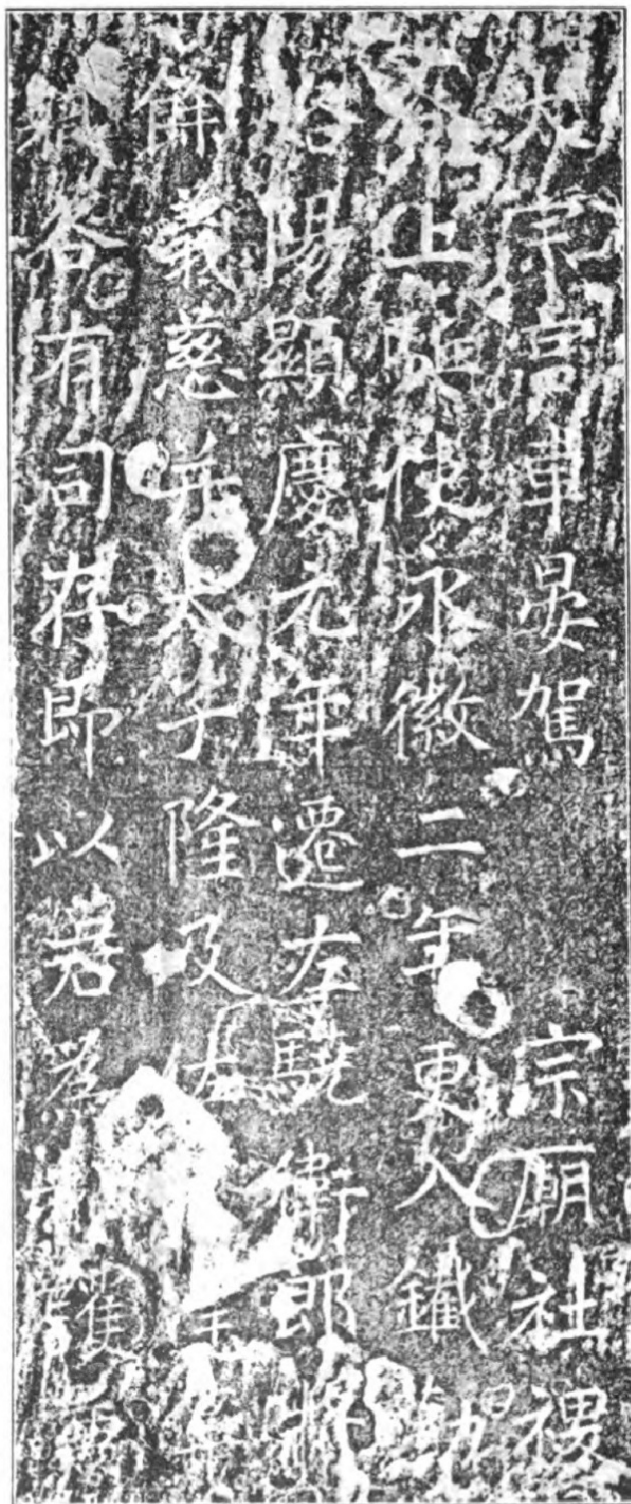 太宗宮車晏駕宗廟社稷
上駈使永徽二年更入鐵勒
洛陽顯慶元年遷左驍衛郎將
義慈并太子隆及佐
各有司存即以君為護兼